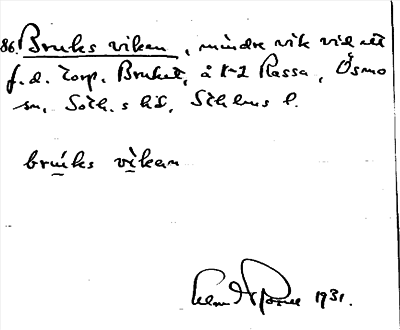 86. Bruksviken, mindre vik vid ett
f. d. torp. Bruket, å 1-2 Rassa, Ösmo
sn, Soth.s hd, Sthlms l.
brùks vìkan
1931.